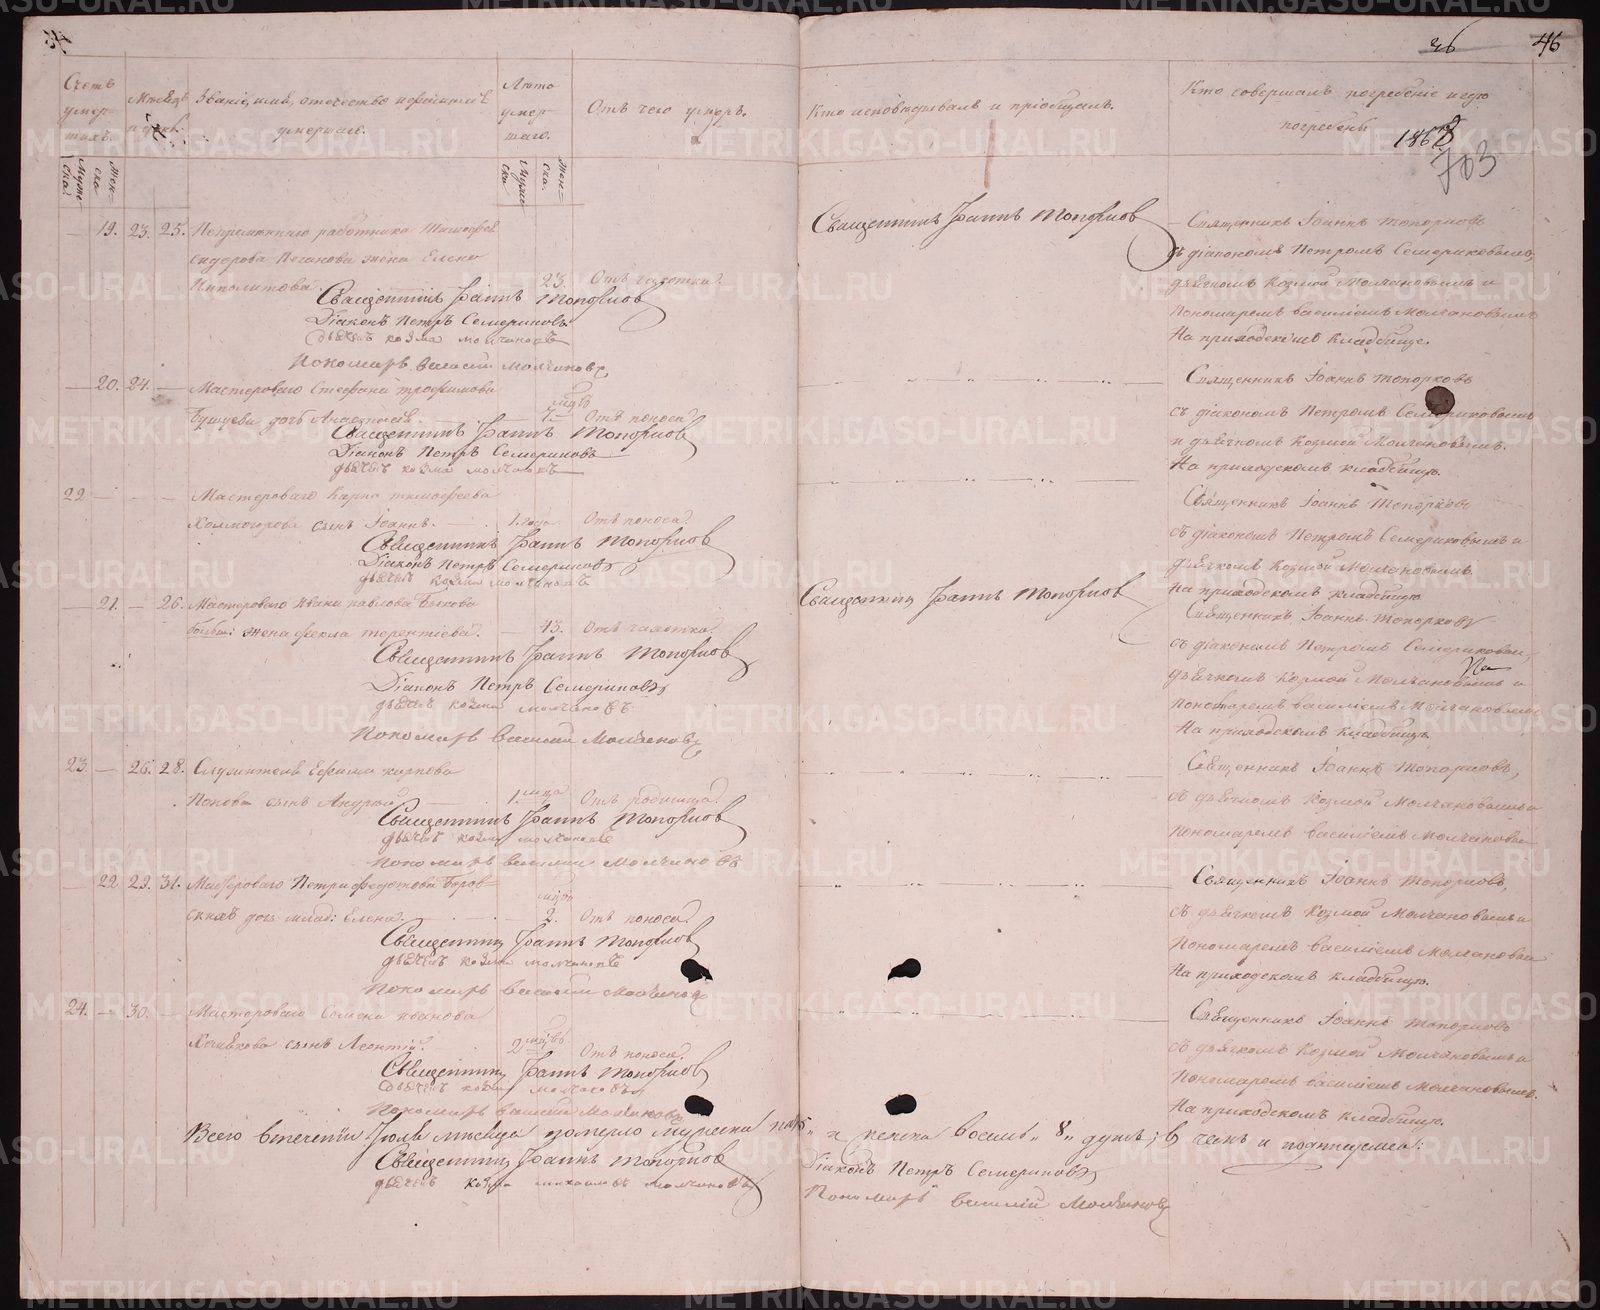 46
Счетъ умер-
шихъ.
Муже-
ска.
Жен-
ска.
Званіе, имя, отечество и фамилія
умершаго.
Лѣта
умер-
шаго.
Муже-
ска
Жен-
ска.
Отъ чего умеръ.
Кто исповѣдывалъ и пріобщалъ.
Кто совершалъ погребеніе и гдѣ
погребены
703
19. 23. 25.
Ипполитова. 23. Отъ чахотки.
Священникъ Іоаннъ Топорковъ
Діаконъ Петръ Семериковъ
дьячекъ Козма Молчановъ
Пономарь Василій Молчановъ
Священникъ Іоаннъ Топорковъ
Священникъ Іоаннъ Топорковъ
съ діакономъ Петромъ Семериковымъ,
дьячкомъ Козмой Молчановымъ и
Пономаремъ Василіемъ Молчановымъ
На приходскомъ кладбище.
20. 24. Мастероваго Стефана Трофимова
дочь Анастасія. 7. Отъ поноса.
Священникъ Іоаннъ Топорковъ
Діаконъ Петръ Семериковъ
дьячекъ Козма Молчановъ
Священникъ Іоаннъ Топорковъ
съ діакономъ Петромъ Семериковымъ
и дьячкомъ Козмой Молчановымъ.
На приходскомъ кладбищѣ.
22 Мастероваго Карпа Тимофеева
Холмогорова сынъ Іоаннъ. 1. года Отъ поноса.
Священникъ Іоаннъ Топорковъ
Діаконъ Петръ Семериковъ
дьячекъ Козма Молчановъ
Священникъ Іоаннъ Топорковъ
съ діакономъ Петромъ Семериковымъ и
дьячкомъ Козмой Молчановымъ.
На приходскомъ кладбищѣ
21. 26. Мастероваго Ивана Павлова Быкова
жена Фекла Терентіева. 43. Отъ чахотки.
Священникъ Іоаннъ Топорковъ
Діаконъ Петръ Семериковъ
дьячекъ Козма Молчановъ
Пономарь Василій Молчановъ
Священникъ Іоаннъ Топорковъ
Священникъ Іоаннъ Топорковъ
съ діакономъ Петромъ Семериковым,
дьячкомъ Козмой Молчановымъ и
Пономаремъ Василіемъ Молчановымъ
На приходскомъ кладбищѣ
23. 26. 28. Служителя Ефима Карпова
Попова сынъ Андрей 1. мѣца Отъ родимца.
Священникъ Іоаннъ Топорковъ
дьячекъ Козма Молчановъ
Пономарь Василій Молчановъ
Священникъ Іоаннъ Топорковъ,
съ дьячкомъ Козмой Молчановымъ и
Пономаремъ Василіемъ Молчановым
22 29. 31. Мастероваго Петра Федотова Боров-
скихъ дочь млад: Елена. 2. Отъ поноса.
Священникъ Іоаннъ Топорковъ
дьячекъ Козма Молчановъ
Пономарь Василій Молчановъ
Священникъ Іоаннъ Топорковъ,
съ дьячкомъ Козмой Молчановымъ и
Пономаремъ Василіемъ Молчановым
На приходскомъ кладбищѣ.
24. 30. Мастероваго Семена Иванова
сынъ Леонтій. 2 Отъ поноса.
Священникъ Іоаннъ Топорковъ
дьячекъ Козма Молчановъ
Пономарь Василій Молчановъ
Священникъ Іоаннъ Топорковъ
съ дьячкомъ Козмой Молчановымъ и
Пономаремъ Василіемъ Молчановымъ.
На приходскомъ кладбищѣ.
Всего втеченіи Іюля мѣсяца померло мужеска и женска восемь „8„ душъ; в чемъ и подписуемся:
Священникъ Іоаннъ Топорковъ
дьячекъ Козма Молчановъ
Діаконъ Петръ Семериковъ
Пономарь Василій Молчановъ
METRIKI.GASO-URAL.RU